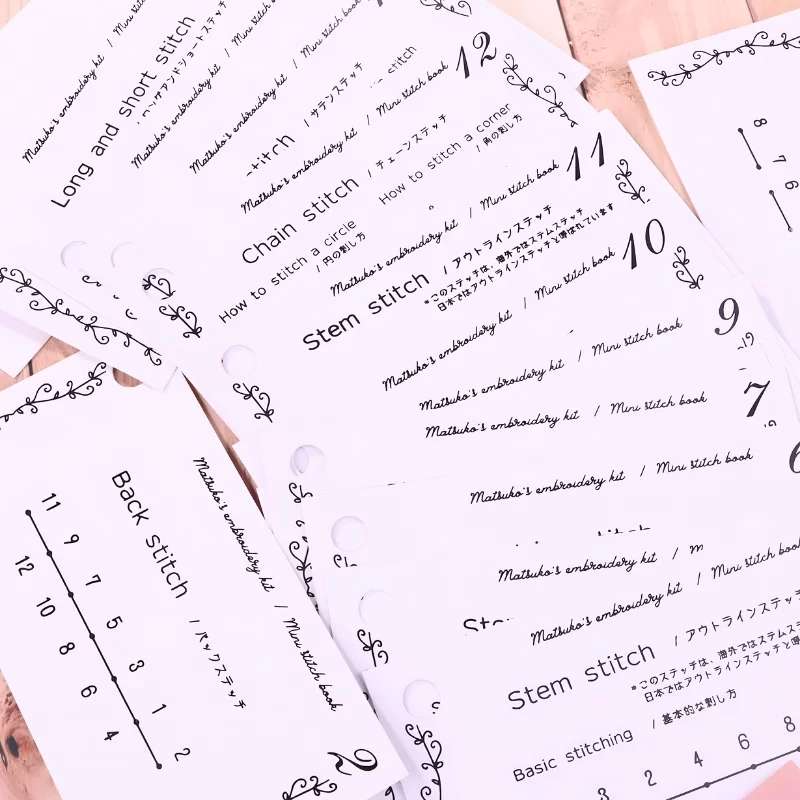 Matsuko's embroidery kit / Mini stitch
Long and short stitch
/ ロングアンドショートステッチ
Matsuko's embroidery kit / Mini stitch book
Matsuko's embroidery kit / Mini stitch book
/ サテンステッチ
Matsuko's embroidery kit / Mini stitch book
12
Chain stitch / チェーンステッチ
How to stitch a circle
/ 円の刺し方
How to stitch a corner
/ 角の刺し方
Matsuko's embroidery kit / Mini stitch book
11
Stem stitch / アウトラインステッチ
*このステッチは、海外ではステムステッチ
日本ではアウトラインステッチと呼ばれています
Matsuko's embroidery kit / Mini stitch book
10
Matsuko's embroidery kit / Mini stitch book
9
Matsuko's embroidery kit / Mini stitch book
7
Matsuko's embroidery kit / Mini stitch book
6
Matsuko's embroidery kit / M
Matsuko's embroidery kit / Mini stitch book
Stem stitch / アウトラインステッチ
*このステッチは、海外ではステムステ
日本ではアウトラインステッチと
Basic stitching / 基本的な刺し方
3 2 4 6 8
Matsuko's embroidery kit / Mini stitch book
2
Back stitch / バックステッチ
11 9 7 5 3 1
12 10 8 6 4 2
8 7 6